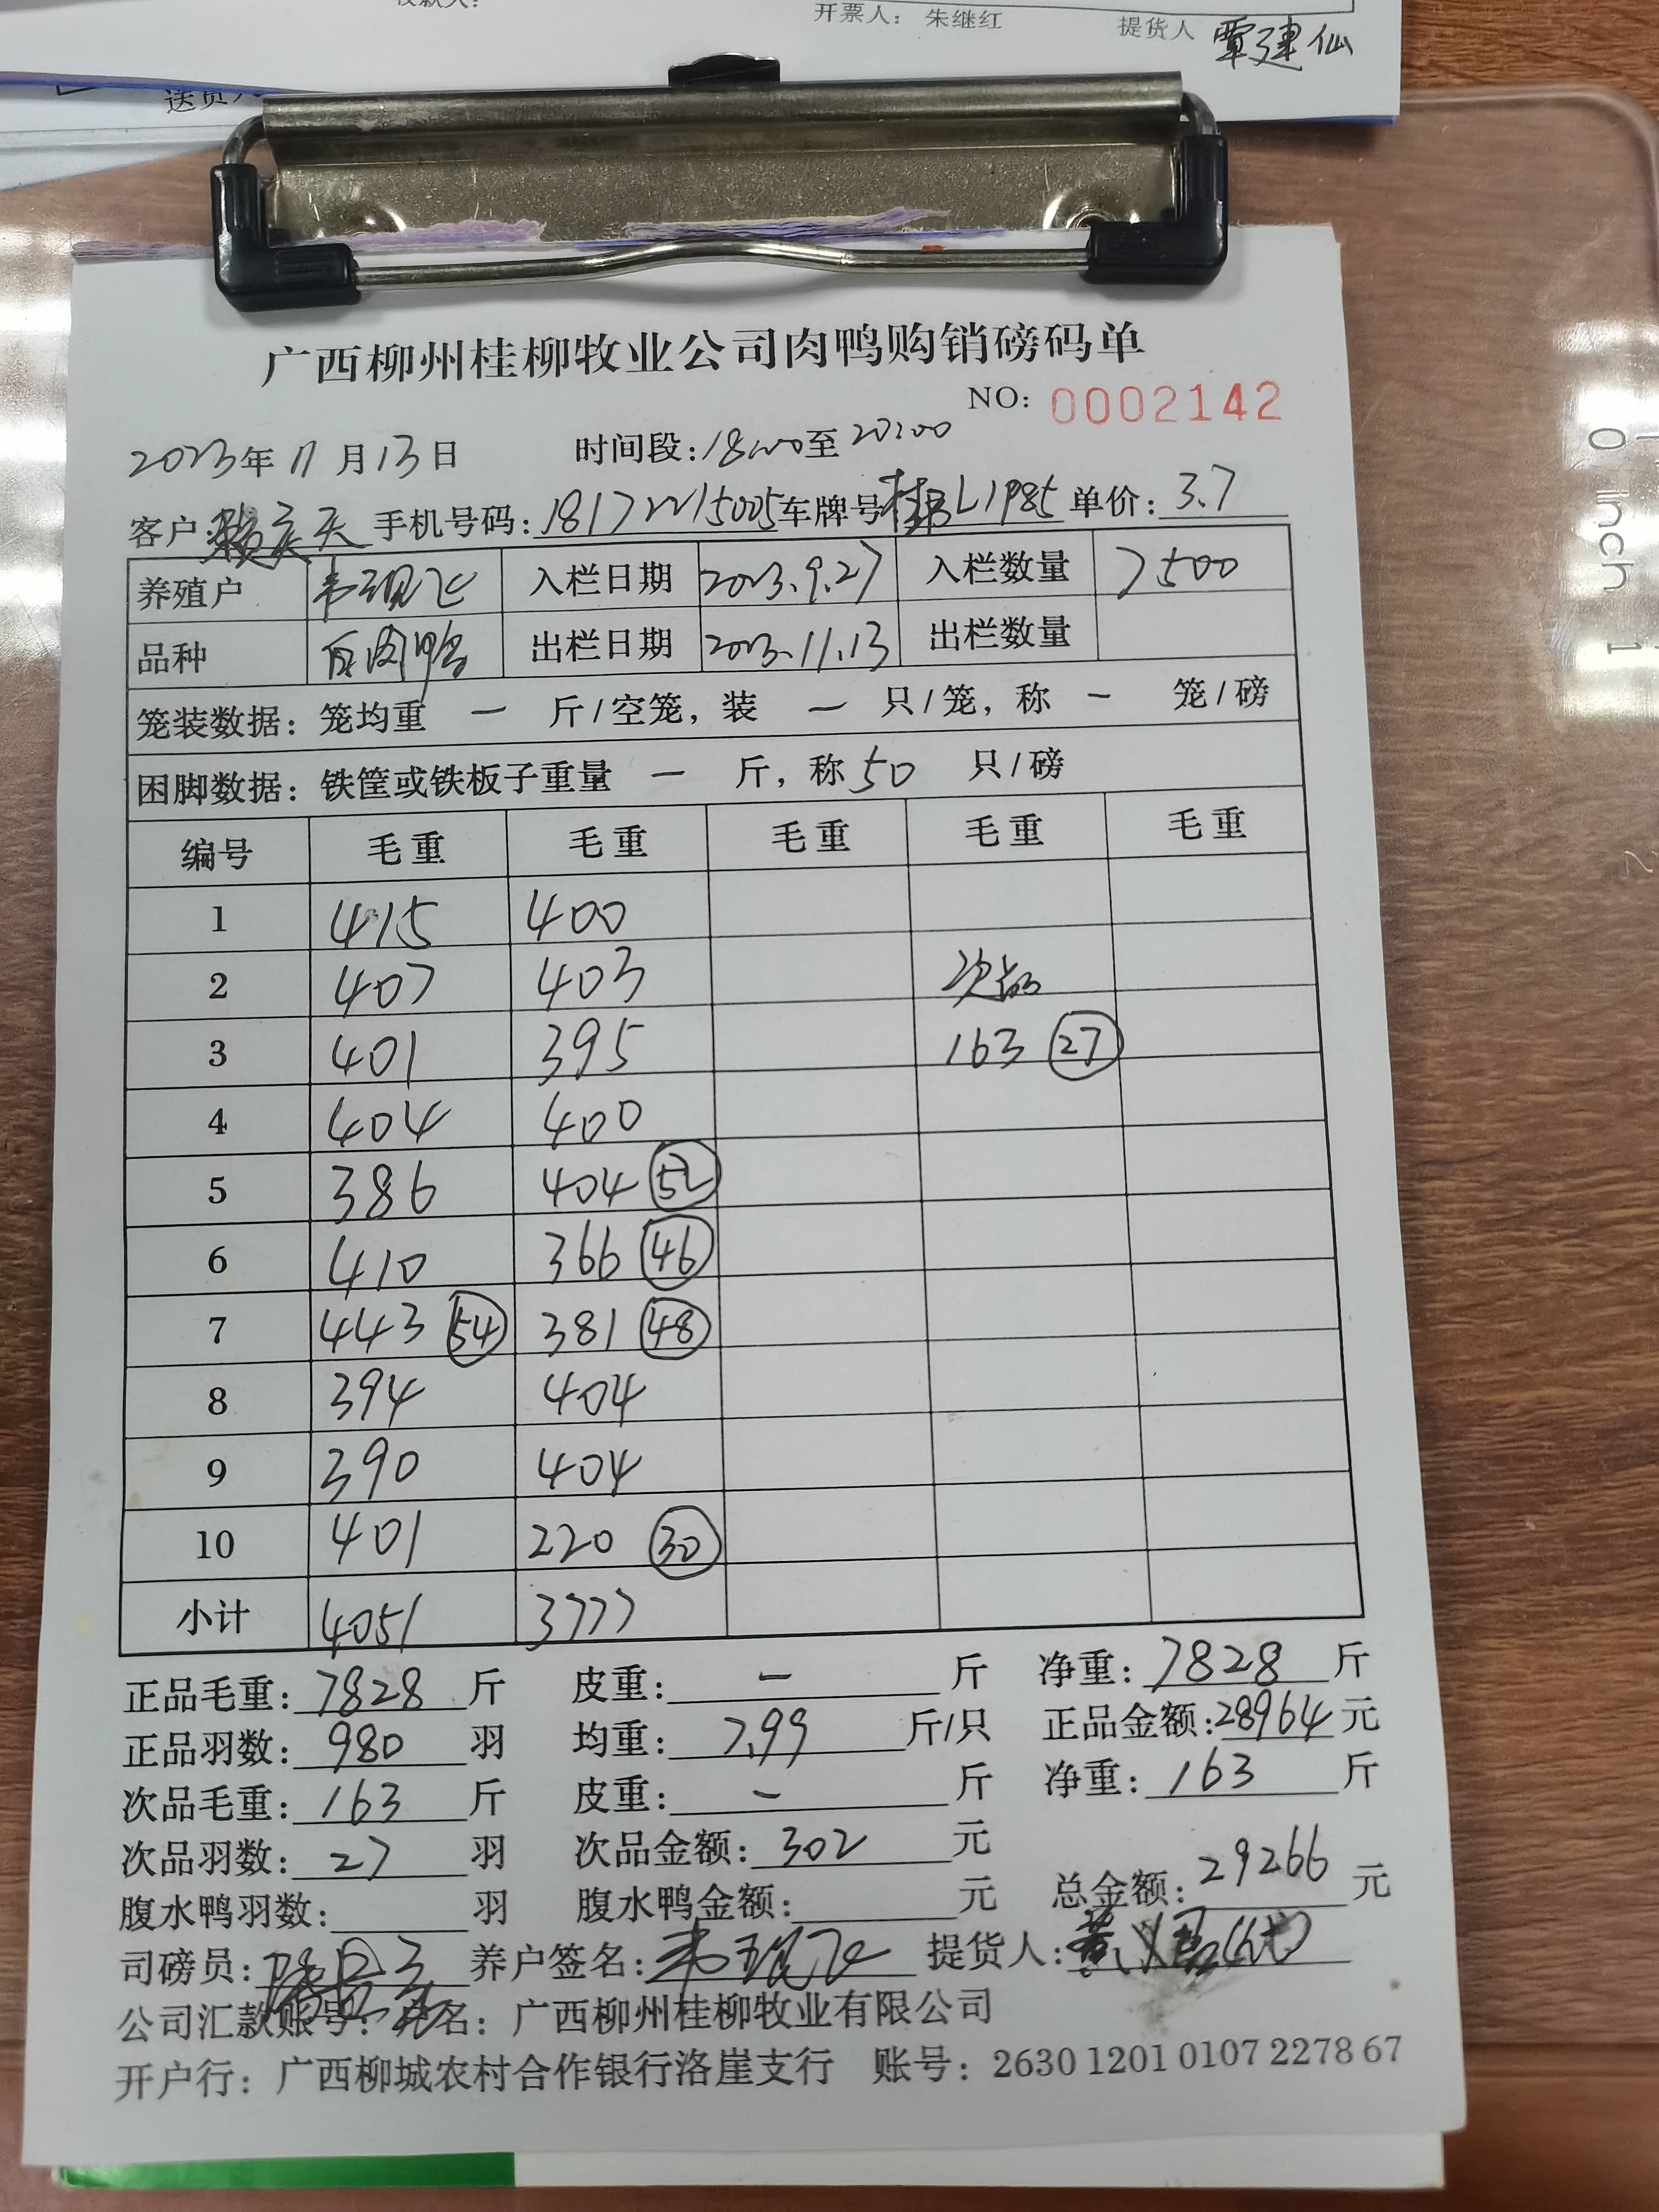 开票人： 朱继红
提货人 覃建仙
广西柳州桂柳牧业公司肉鸭购销磅码单
NO: 0002142
2023年 11 月 13 日 时间段: 18:00 至 20:00
客户: 天 手机号码: 18172215005 车牌号 桂 L1985 单价: 3.7
养殖户 韦现飞 入栏日期 2023.9.27 入栏数量 7500
品种 白肉鸭 出栏日期 2023.11.13 出栏数量
笼装数据: 笼均重 一 斤/空笼, 装 一 只/笼, 称 一 笼/磅
困脚数据: 铁筐或铁板子重量 一 斤, 称 50 只/磅
编号 毛重 毛重 毛重 毛重 毛重
1 415 400
2 407 403 次品
3 401 395 163 27
4 404 400
5 386 404 52
6 410 366 46
7 443 54 381 48
8 394 404
9 390 404
10 401 220 30
小计 4051 3777
正品毛重: 7828 斤 皮重: 一 斤 净重: 7828 斤
正品羽数: 980 羽 均重: 7.99 斤/只 正品金额: 28964 元
次品毛重: 163 斤 皮重: 一 斤 净重: 163 斤
次品羽数: 27 羽 次品金额: 302 元
腹水鸭羽数: 羽 腹水鸭金额: 元 总金额: 29266 元
司磅员: 养户签名: 韦现飞 提货人: (代)
公司汇款账号: 户名: 广西柳州桂柳牧业有限公司
开户行: 广西柳城农村合作银行洛崖支行 账号: 2630 1201 0107 2278 67
0 inch 1